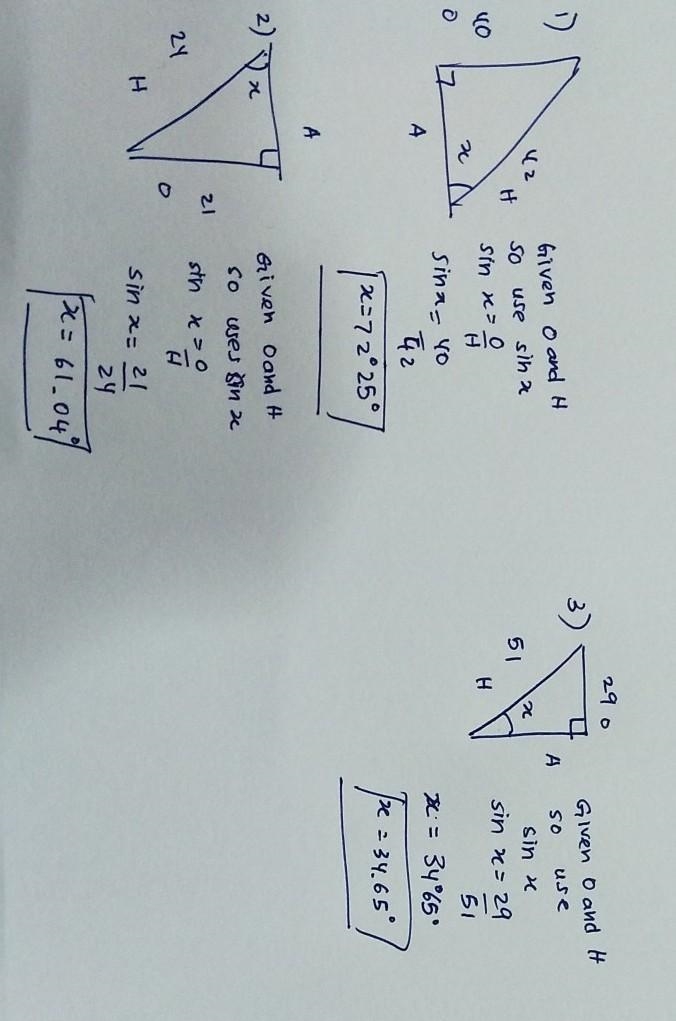 1)
40
O
42
H
x
A
Given O and H
so use sin x
sin x = O
H
sin x = 40
42
x = 72°25°
2)
A
x
24
H
21
O
Given O and H
so uses sin x
sin x = O
H
sin x = 21
24
x = 61.04°
3)
29 O
51
H
x
A
Given O and H
so use
sin x
sin x = 29
51
x = 34°65°
x = 34.65°